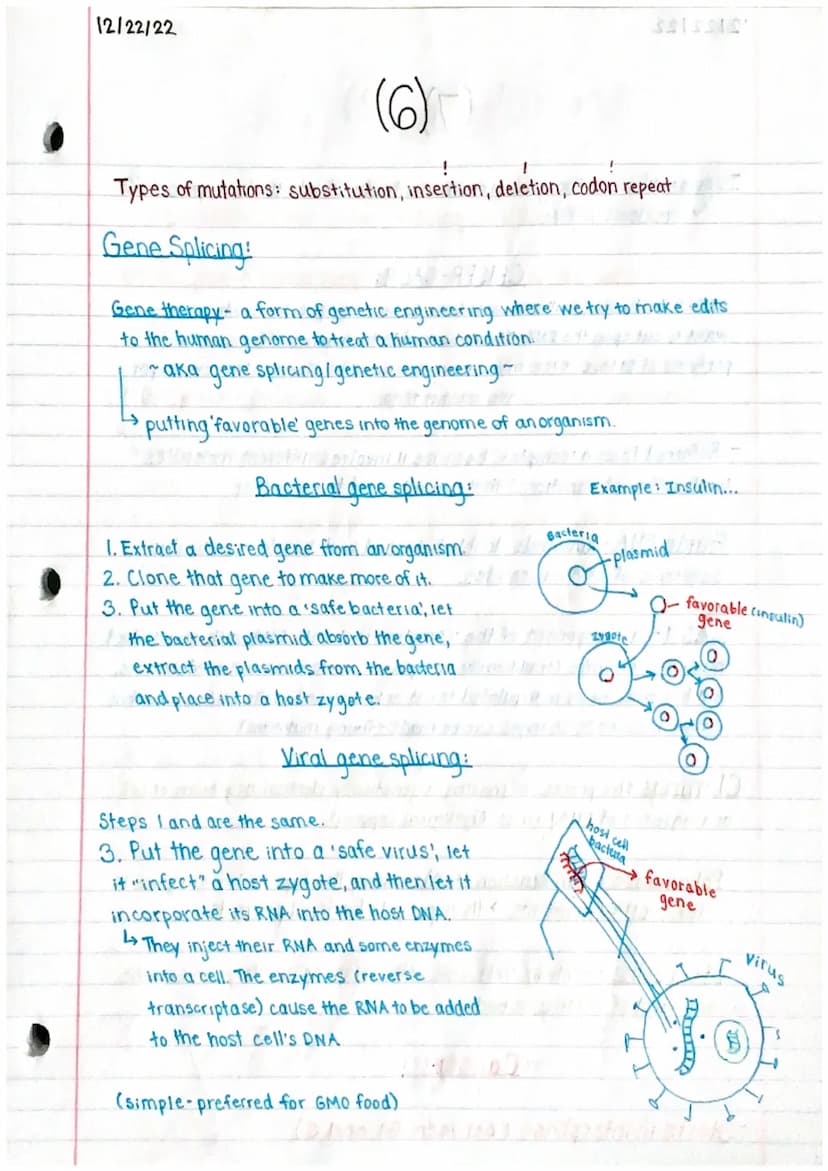 12/22/22
(6)
! ! !
Types of mutations: substitution, insertion, deletion, codon repeat
Gene Splicing:
Gene therapy- a form of genetic engineering where we try to make edits
to the human genome to treat a human condition.
~ aka gene splicing/genetic engineering ~
↳ putting 'favorable' genes into the genome of an organism.
Bacterial gene splicing:
Example: Insulin...
1. Extract a desired gene from an organism.
2. Clone that gene to make more of it.
3. Put the gene into a 'safe bacteria', let
the bacterial plasmid absorb the gene,
extract the plasmids from the bacteria
and place into a host zygote.
Bacteria
plasmid
favorable (insulin)
gene
zygote
Viral gene splicing:
Steps 1 and are the same.
3. Put the gene into a 'safe virus', let
it "infect" a host zygote, and then let it
incorporate its RNA into the host DNA.
↳ They inject their RNA and some enzymes
into a cell. The enzymes (reverse
transcriptase) cause the RNA to be added
to the host cell's DNA
(simple-preferred for GMO food)
host cell
bacteria
favorable
gene
Virus